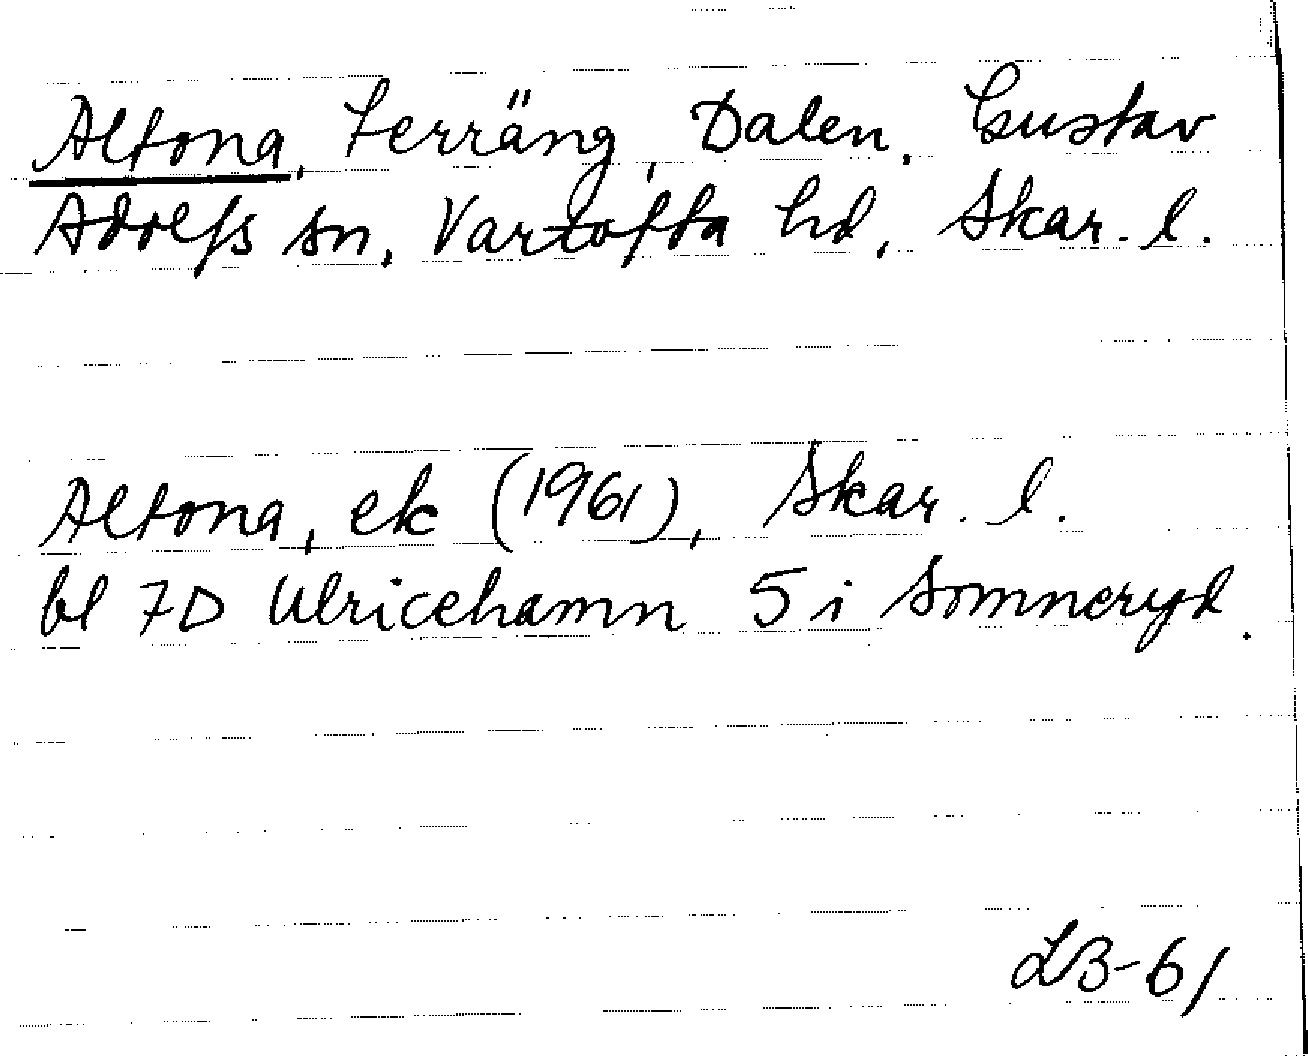 Altona, terräng, Dalen, Gustav
Adolfs sn, Vartofta hd, Skar. l.
Altona, ek (1961), Skar. l.
bl 7D Ulricehamn 5 i Somneryd.
LB-61